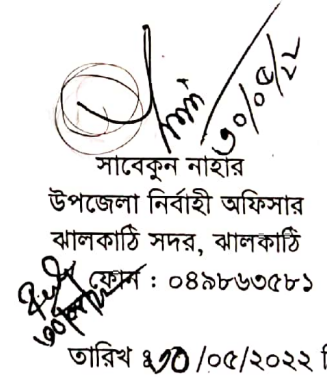 ৩০/০৫/২২
সাবেকুন নাহার
উপজেলা নির্বাহী অফিসার
ঝালকাঠি সদর, ঝালকাঠি
ফোন : ০৪৯৮৬৩৫৮১
তারিখ ঃ ৩০/০৫/২০২২